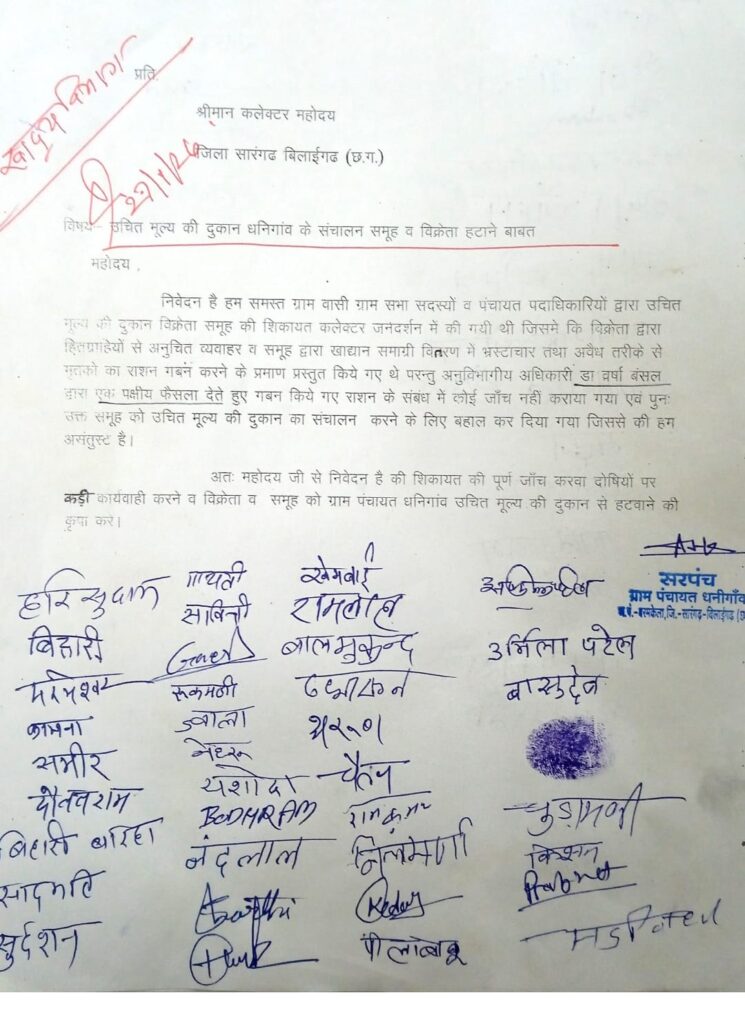 खाद्य विभाग
प्रति,
श्रीमान कलेक्टर महोदय
जिला सारंगढ बिलाईगढ (छ.ग.)
विषय– उचित मूल्य की दुकान धनिगांव के संचालन समूह व विक्रेता हटाने बाबत
महोदय,
निवेदन है हम समस्त ग्राम वासी ग्राम सभा सदस्यों व पंचायत पदाधिकारियों द्वारा उचित
मूल्य की दुकान विक्रेता समूह की शिकायत कलेक्टर जनदर्शन में की गयी थी जिसमे कि विक्रेता द्वारा
हितग्राहियों से अनुचित व्यवाहर व समूह द्वारा खाद्यान समाग्री वितरण में भ्रस्टाचार तथा अवैध तरीके से
मृतको का राशन गबन करने के प्रमाण प्रस्तुत किये गए थे परन्तु अनुविभागीय अधिकारी डा वर्षा बंसल
द्वारा एक पक्षीय फैसला देते हुए गबन किये गए राशन के संबंध में कोई जाँच नहीं कराया गया एवं पुनः
उक्त समूह को उचित मूल्य की दुकान का संचालन करने के लिए बहाल कर दिया गया जिससे की हम
असंतुस्ट है।
अतः महोदय जी से निवेदन है की शिकायत की पूर्ण जाँच करवा दोषियों पर
कड़ी कार्यवाही करने व विक्रेता व समूह को ग्राम पंचायत धनिगांव उचित मूल्य की दुकान से हटवाने की
कृपा करे।
सरपंच
ग्राम पंचायत धनीगाँव
हरि सुदाम गायत्री खेमबाई
सावित्री रामलाल
बिहारी बालमुकुन्द उर्मिला पटेल
रूकमणी बासुदेव
कामना ज्वाला
समीर नेहरू
यशोदा चैतन
BODHRAM रामकुमार चुड़ामणी
बिहारी बारिहा नंदलाल किशन
सादमति
सुर्दशन पीलाबाबू